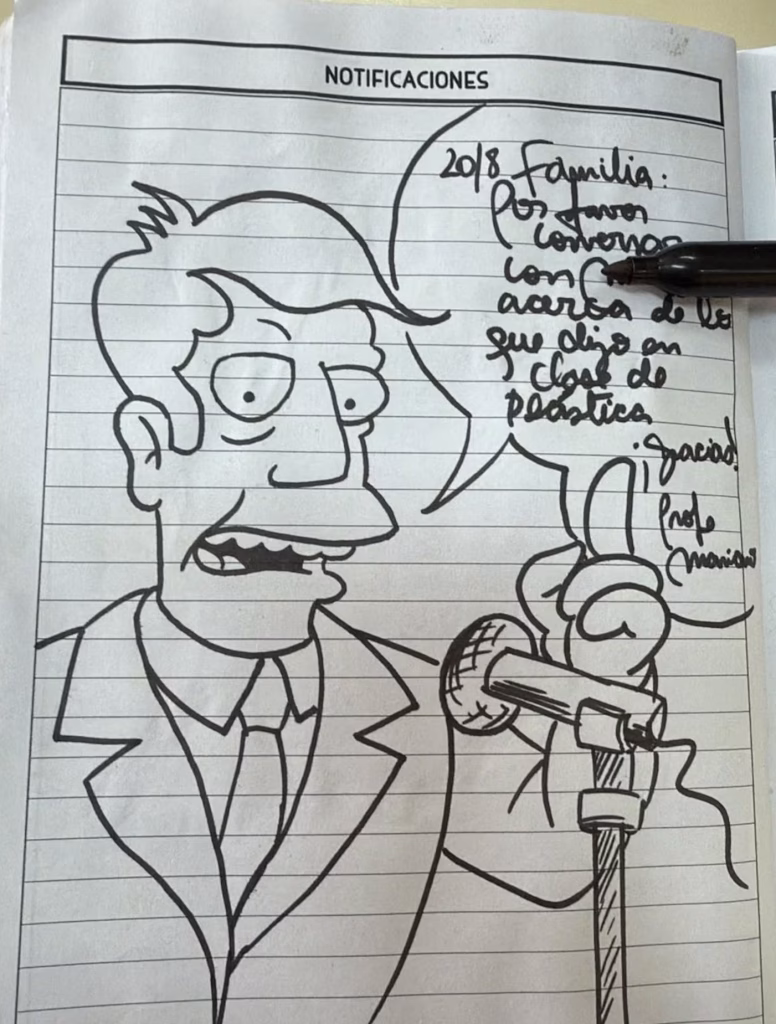 NOTIFICACIONES
20/8 Familia:
Por favor
conversar
con
acerca de lo
que dijo en
clase de
plástica
¡Gracias!
Profe